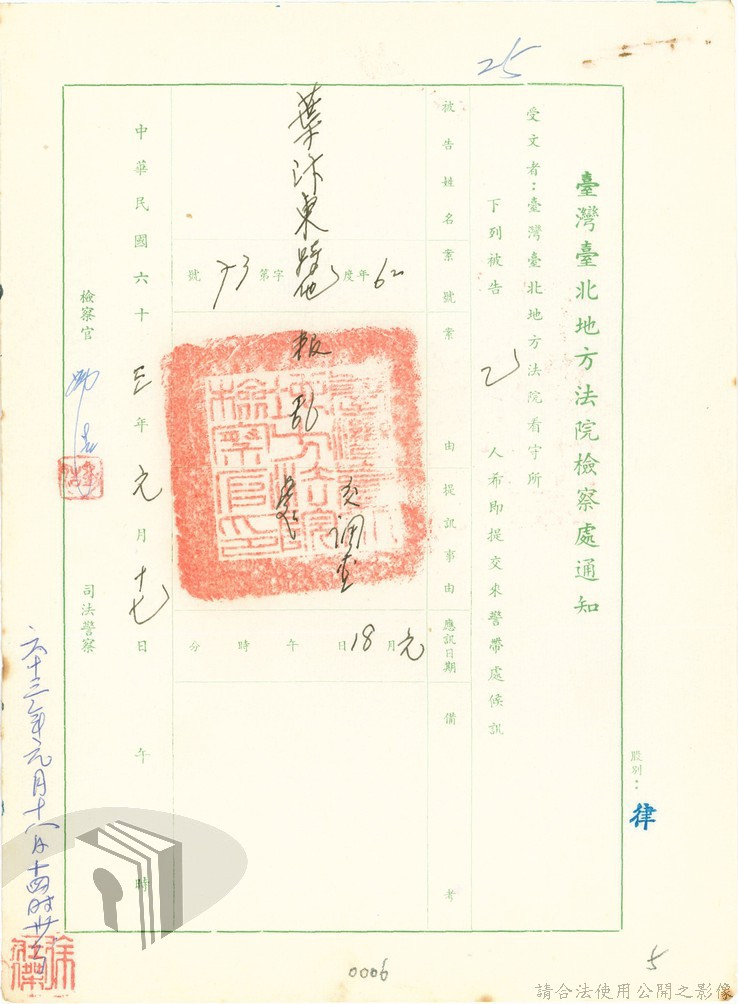 25
臺灣臺北地方法院檢察處通知
股別：律
受文者：臺灣臺北地方法院看守所
下列被告
人希即提交來警帶處候訊
被告姓名
案號
案由
提訊事由
應訊日期
備考
葉汴東
62年度 字第73號
叛亂
調查
元月18日 午 時 分
中華民國六十三年元月十七日 午 時
檢察官
司法警察
六十三年元月十八日十四時卅分
0006
5
請合法使用公開之影像